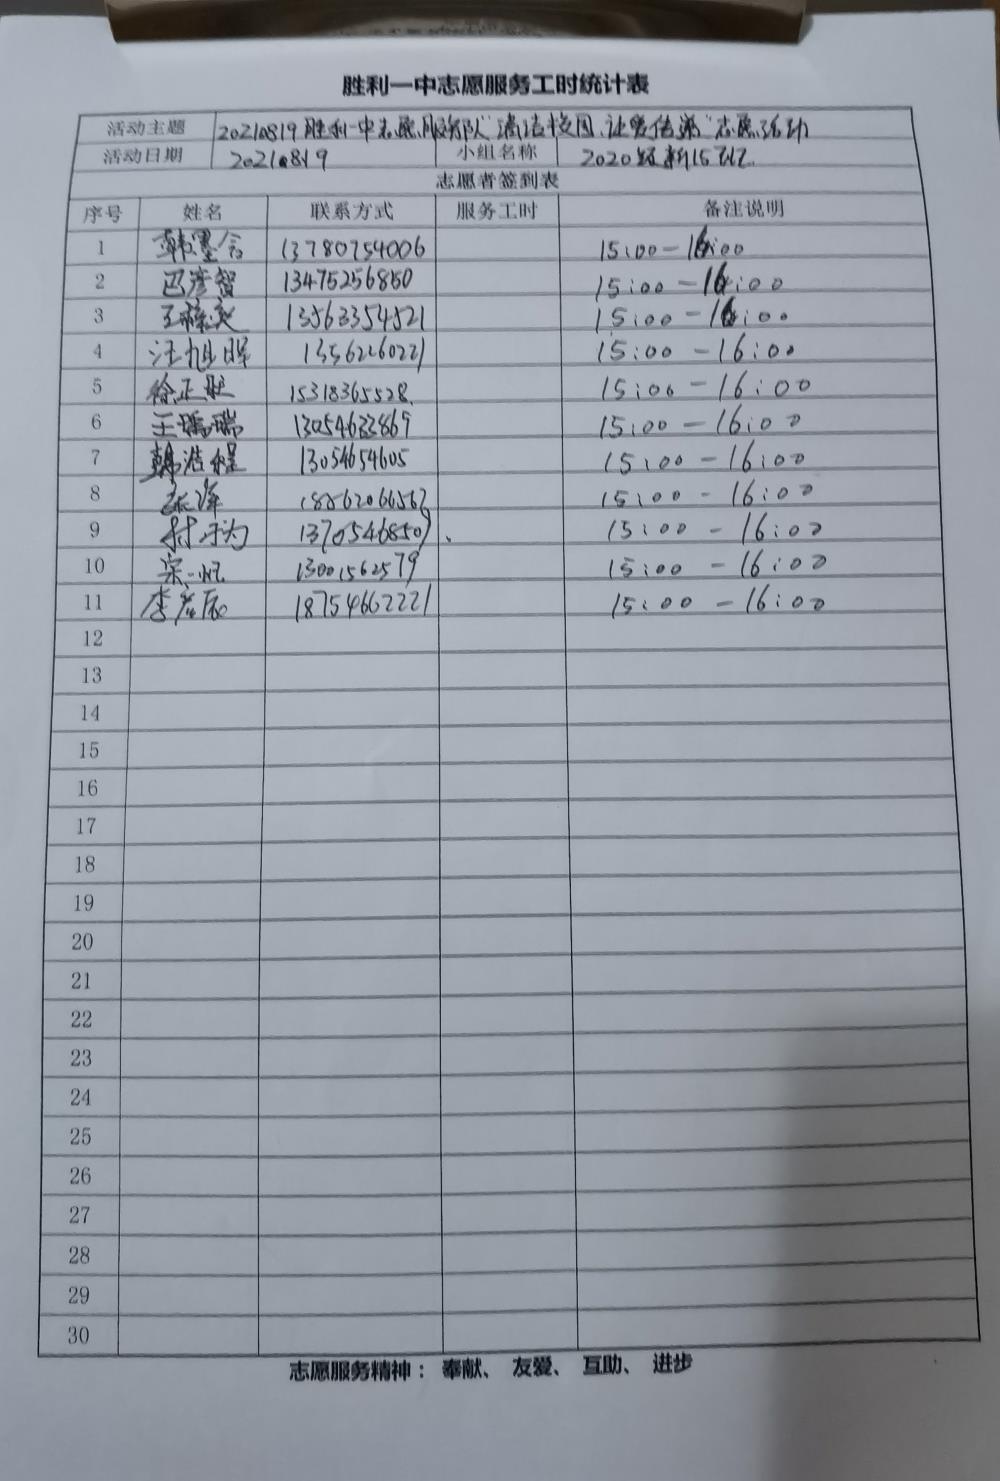 胜利一中志愿服务工时统计表
活动主题 20210819胜利一中志愿服务队“清洁校园,让爱传递”志愿活动
活动日期 20210819 小组名称 2020级新15班
志愿者签到表
序号 姓名 联系方式 服务工时 备注说明
1 韩墨含 13780754006 15:00-16:00
2 巴彦智 13475256850 15:00-16:00
3 13563354521 15:00-16:00
4 汪旭晖 13562260221 15:00-16:00
5 徐正 15318365528 15:00-16:00
6 王瑞瑞 13054633869 15:00-16:00
7 韩浩程 13054654605 15:00-16:00
8 18562066562 15:00-16:00
9 13705468509 15:00-16:00
10 宋一帆 13001562579 15:00-16:00
11 李彦辰 18754662221 15:00-16:00
12
13
14
15
16
17
18
19
20
21
22
23
24
25
26
27
28
29
30
志愿服务精神: 奉献、 友爱、 互助、 进步